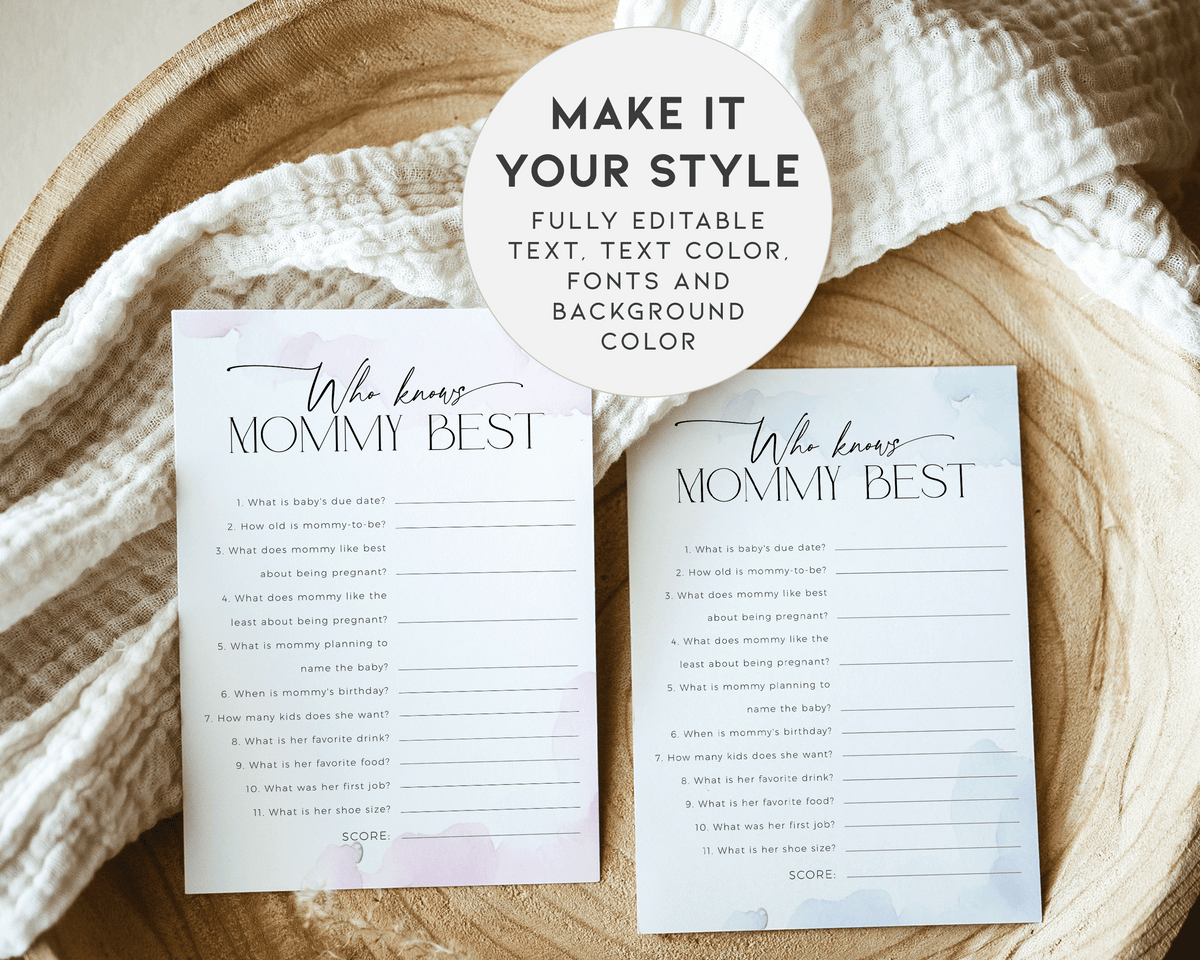 MAKE IT
YOUR STYLE
FULLY EDITABLE
TEXT, TEXT COLOR,
FONTS AND
BACKGROUND
COLOR
Who knows
MOMMY BEST
1. What is baby's due date?
2. How old is mommy-to-be?
3. What does mommy like best
about being pregnant?
4. What does mommy like the
least about being pregnant?
5. What is mommy planning to
name the baby?
6. When is mommy's birthday?
7. How many kids does she want?
8. What is her favorite drink?
9. What is her favorite food?
10. What was her first job?
11. What is her shoe size?
SCORE:
Who knows
MOMMY BEST
1. What is baby's due date?
2. How old is mommy-to-be?
3. What does mommy like best
about being pregnant?
4. What does mommy like the
least about being pregnant?
5. What is mommy planning to
name the baby?
6. When is mommy's birthday?
7. How many kids does she want?
8. What is her favorite drink?
9. What is her favorite food?
10. What was her first job?
11. What is her shoe size?
SCORE: